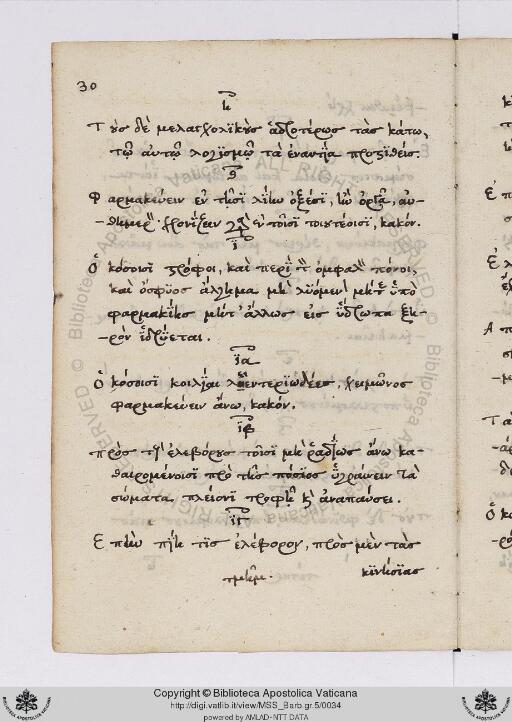 30
η
Τοὺς δὲ μελαγχολικοὺς ἁδροτέρως τὰς κάτω,
τῷ αὐτῷ λογισμῷ τὰ ἐναντία προστιθείς.
θ
Φαρμακεύειν ἐν τοῖσι λίην ὀξέσι, ἢν ὀργᾷ, αὐ-
-θημερόν· χρονίζειν γὰρ ἐν τοῖσι τοιουτέοισι, κακόν.
ι
Ὁκόσοισι στρόφοι, καὶ περὶ τὸν ὀμφαλὸν πόνοι,
καὶ ὀσφύος ἄλγημα μὴ λυόμενον μήτε ὑπὸ
φαρμακίης μήτ' ἄλλως εἰς ὕδρωπα ξη-
-ρὸν ἱδρύεται.
ια
Ὁκόσοισι κοιλίαι λειεντεριώδεες, χειμῶνος
φαρμακεύειν ἄνω, κακόν.
ιβ
πρὸς τοὺς ἐλεβόρους τοῖσι μὴ ῥᾳδίως ἄνω κα-
θαιρομένοισι πρὸ τῆς πόσιος ὑγραίνειν τὰ
σώματα, πλείονι τροφῇ καὶ ἀναπαύσει.
ιγ
Ἐπὴν πίῃ τις ἐλέβορον, πρὸς μὲν τὰς
κινήσιας
Copyright © Biblioteca Apostolica Vaticana
http://digi.vatlib.it/view/MSS_Barb.gr.5/0034
powered by AMLAD-NTT DATA